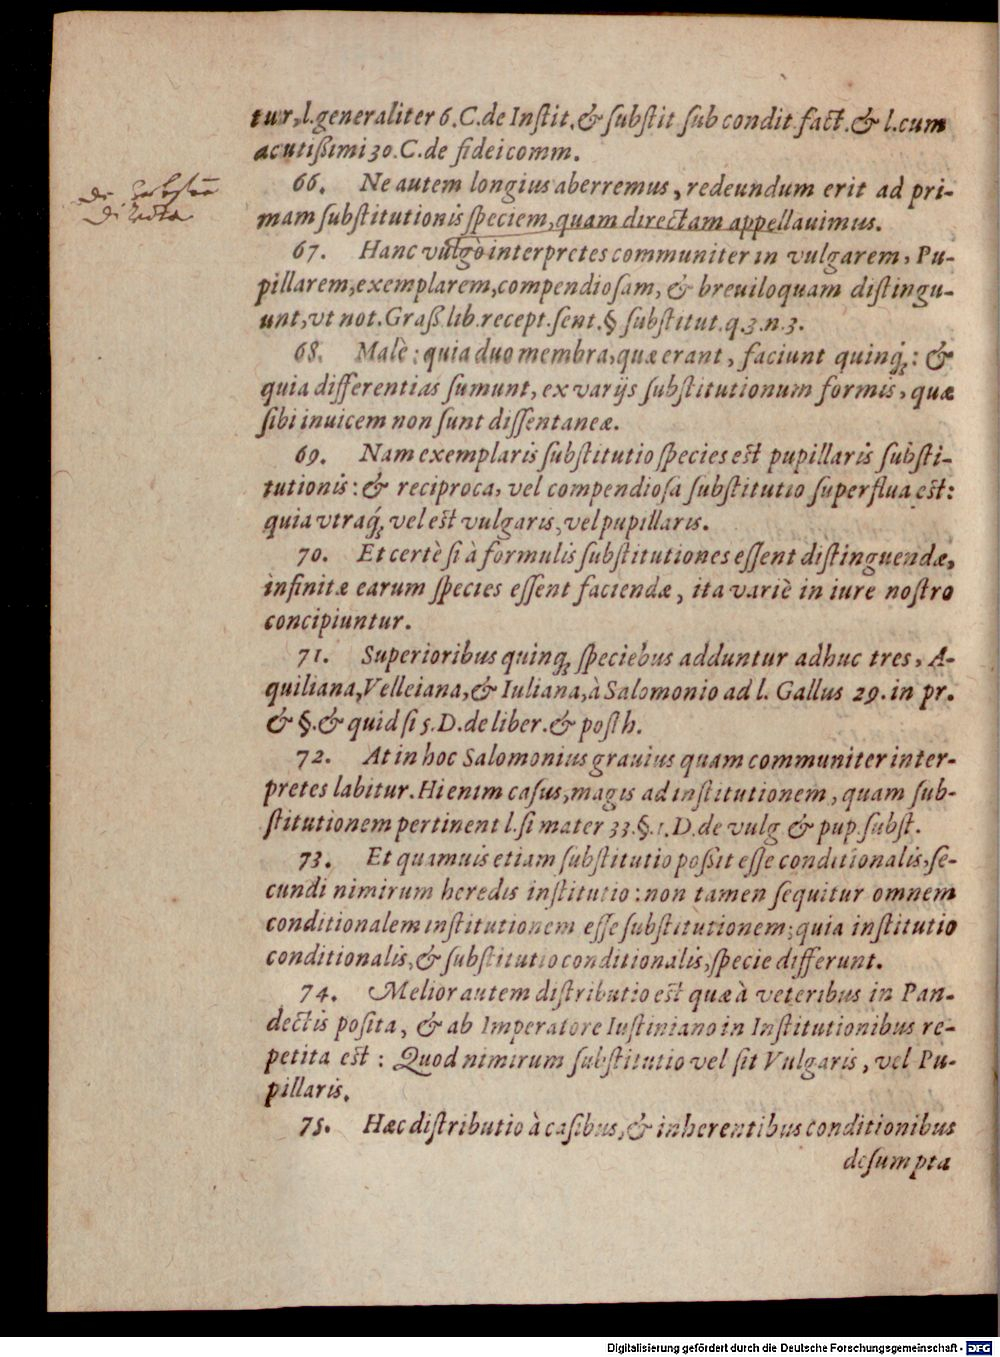 tur, l. generaliter 6. C. de Inſtit. & ſubſtit ſub condit fact. & l. cum
acutißimi 30. C. de fideicomm.
66. Ne autem longius aberremus, redeundum erit ad pri-
mam ſubſtitutionis ſpeciem, quam directam appellauimus.
de
directa
67. Hanc vulgò interpretes communiter in vulgarem, Pu-
pillarem, exemplarem, compendioſam, & breuiloquam diſtingu-
unt, vt not. Graß lib. recept. ſent. § ſubſtitut. q. 3. n. 3.
68. Malè: quia duo membra, quæ erant, faciunt quinq́;: &
quia differentias ſumunt, ex varijs ſubſtitutionum formis, quæ
ſibi inuicem non ſunt diſſentaneæ.
69. Nam exemplaris ſubſtitutio ſpecies est pupillaris ſubſti-
tutionis: & reciproca, vel compendioſa ſubſtitutio ſuperflua est:
quia vtraq́; vel est vulgaris, vel pupillaris.
70. Et certè ſi à formulis ſubſtitutiones eſſent diſtinguendæ,
infinitæ earum ſpecies eſſent faciendæ, ita variè in iure noſtro
concipiuntur.
71. Superioribus quinq; ſpeciebus adduntur adhuc tres, A-
quiliana, Velleiana, & Iuliana, à Salomonio ad l. Gallus 29. in pr.
& §. & quid ſi 5. D. de liber. & poſth.
72. At in hoc Salomonius grauius quam communiter inter-
pretes labitur. Hi enim caſus, magis ad inſtitutionem, quam ſub-
ſtitutionem pertinent l. ſi mater 33. §. 1. D. de vulg & pup. ſubſt.
73. Et quamuis etiam ſubſtitutio poßit eſſe conditionalis, ſe-
cundi nimirum heredis inſtitutio: non tamen ſequitur omnem
conditionalem inſtitutionem eſſe ſubſtitutionem; quia inſtitutio
conditionalis, & ſubſtitutio conditionalis, ſpecie differunt.
74. Melior autem diſtributio est quæ à veteribus in Pan-
dectis poſita, & ab Imperatore Iuſtiniano in Inſtitutionibus re-
petita est: Quod nimirum ſubſtitutio vel ſit Vulgaris, vel Pu-
pillaris.
75. Hæc diſtributio à caſibus, & inherentibus conditionibus
deſumpta
Digitalisierung gefördert durch die Deutsche Forschungsgemeinschaft - DFG